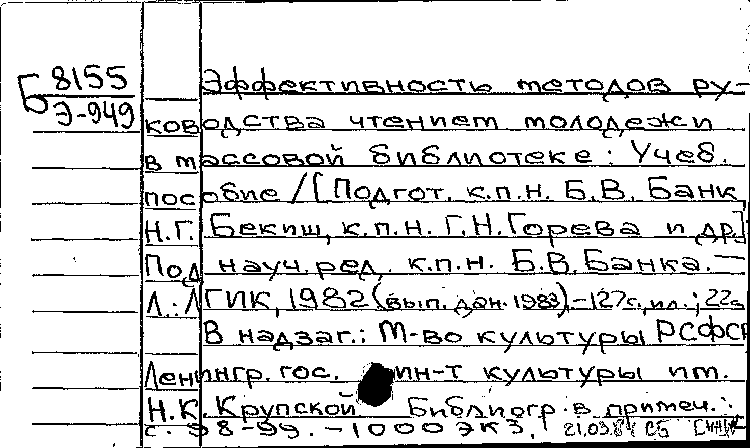 Б 8155
Э-949
Эффективность методов ру-
ководства чтением молодежи
в массовой библиотеке: Учеб.
пособие / [Подгот. к.п.н. Б.В. Банк,
Н.Г. Бекиш, к.п.н. Г.Н. Горева и др.]
Под науч. ред. к.п.н. Б.В. Банка. —
Л.: ЛГИК, 1982 (вып. дан. 1983). - 127 с., ил.; 22 с
В надзаг.: М-во культуры РСФСР
Ленингр. гос. ин-т культуры им.
Н.К. Крупской Библиогр. в примеч.:
с. 98-99. - 1000 экз. 21.03.84